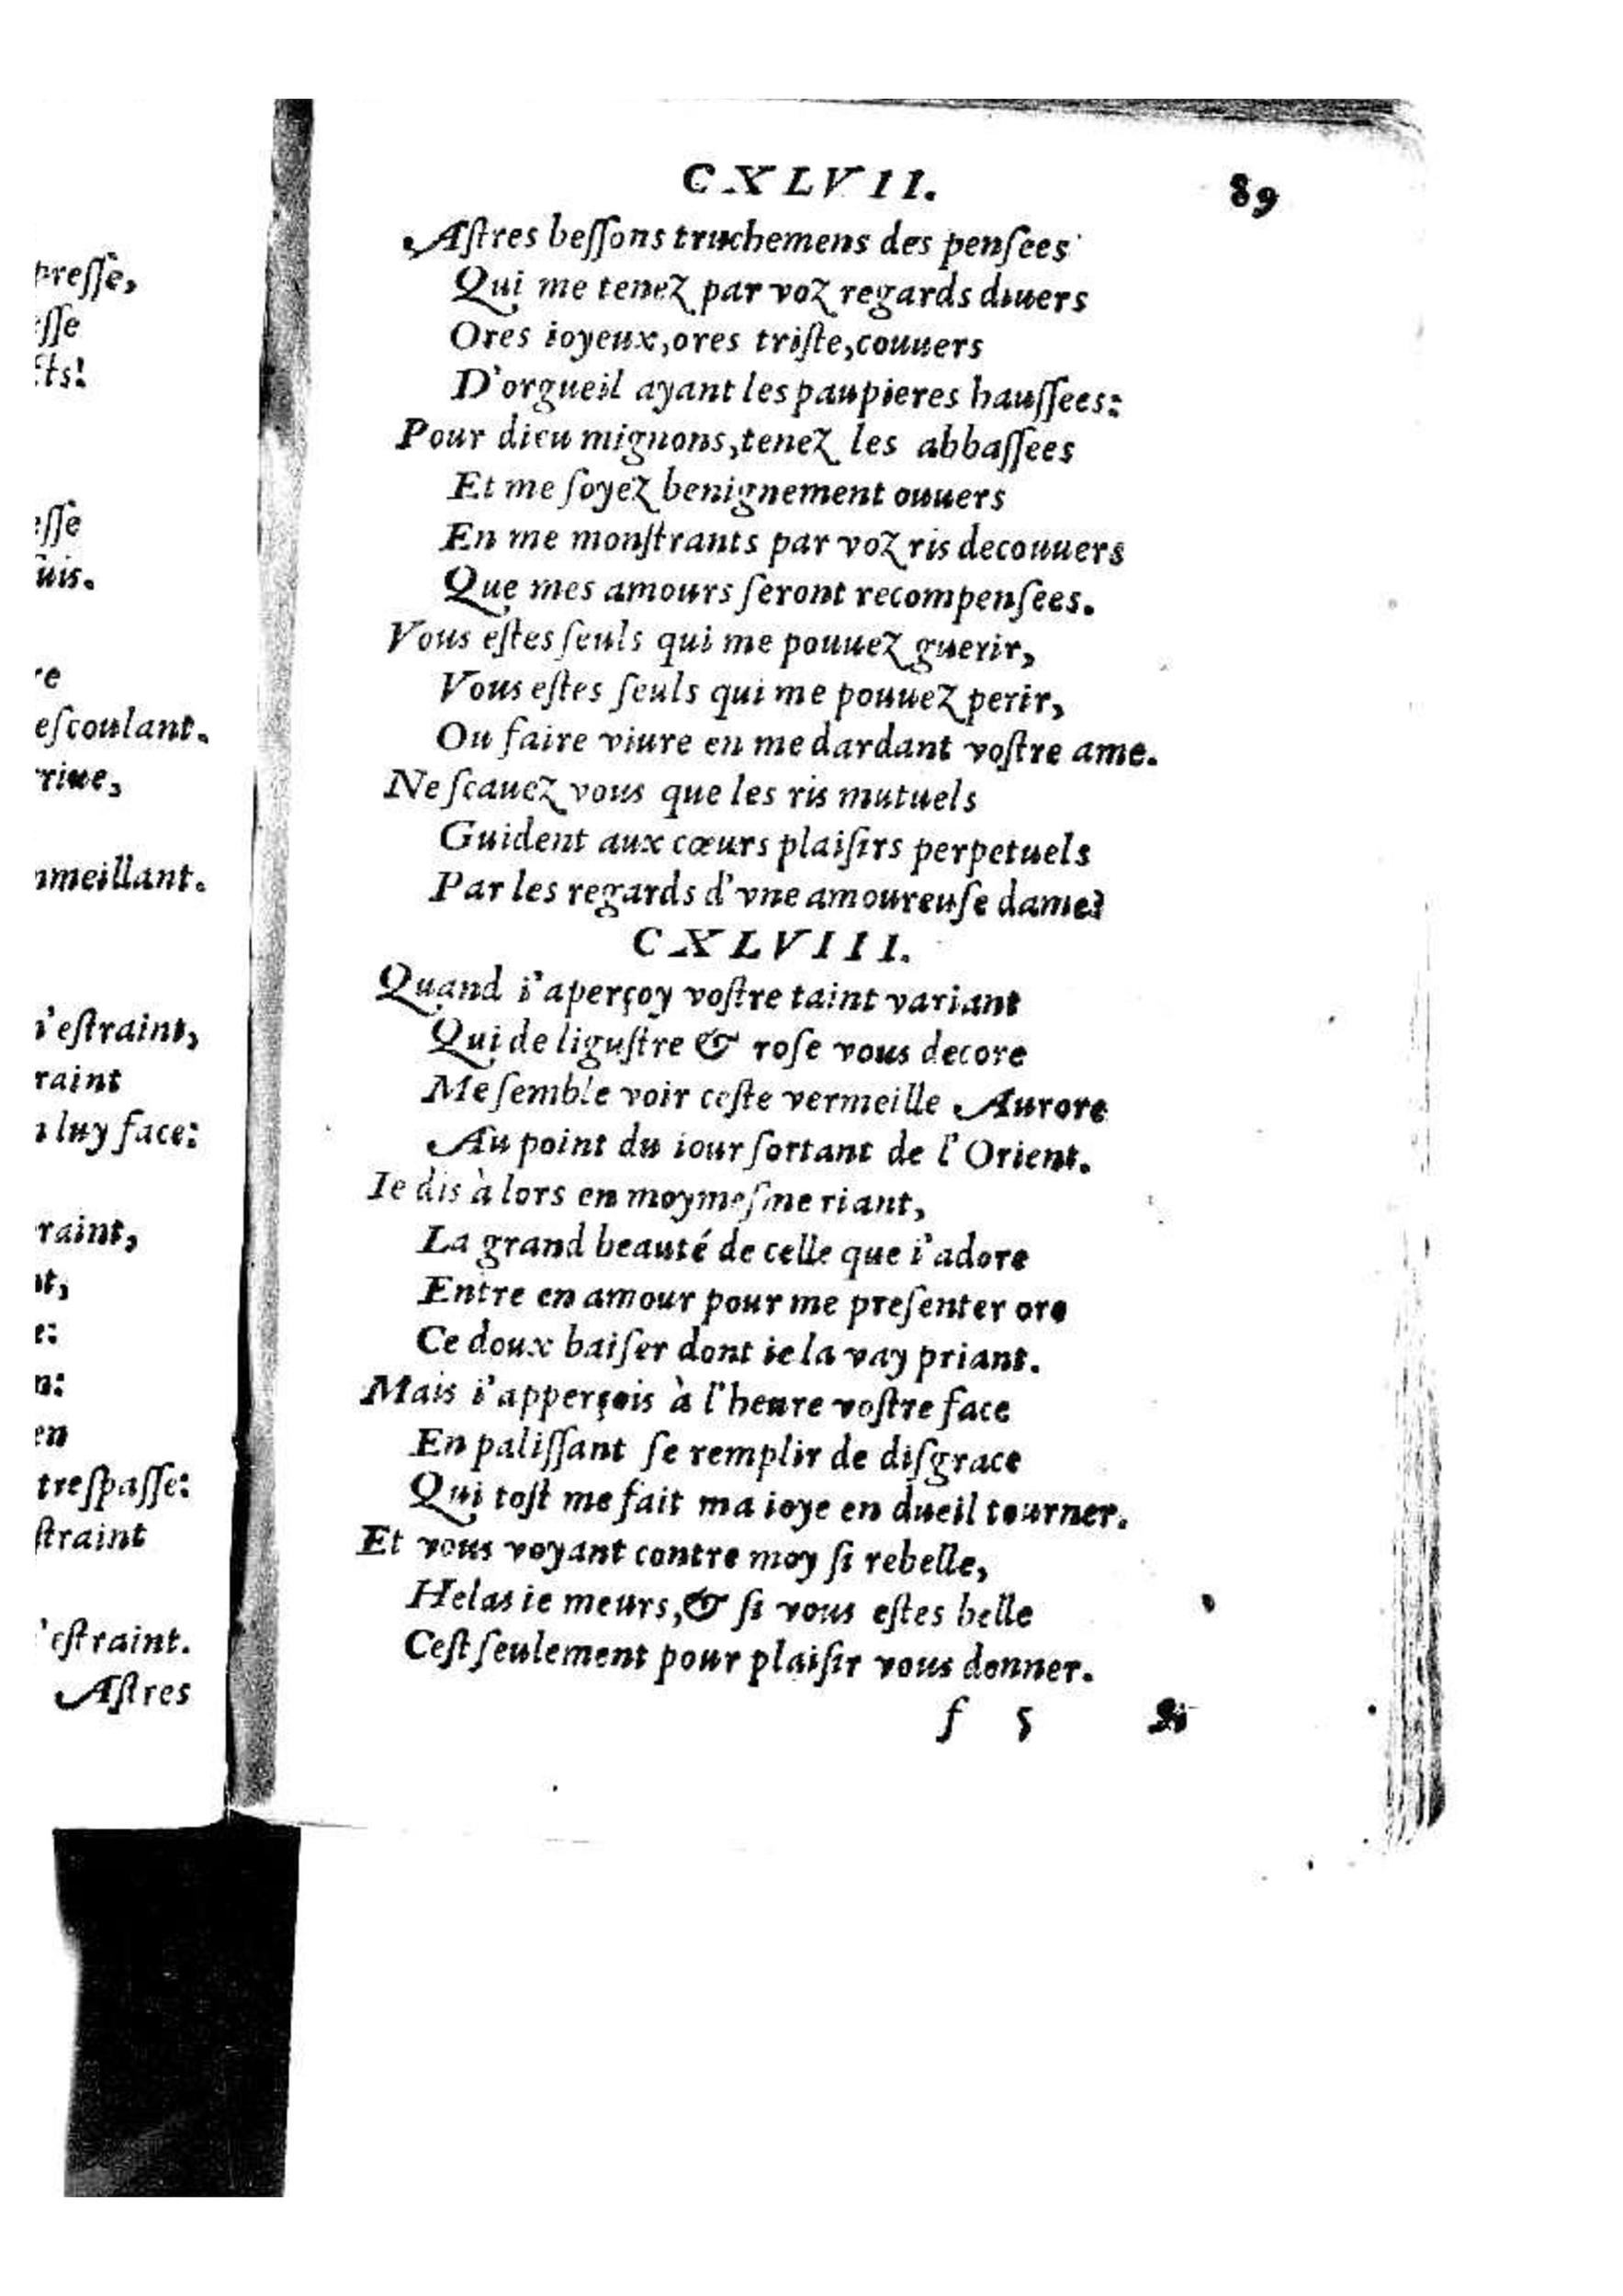 presse,
esse
ts!
esse
uis.
re
escoulant.
riue,
nmeillant.
i'estraint,
raint
luy face:
raint,
nt,
e:
n:
en
trespasse:
straint
'estraint.
Astres
CXLVII.
89
Aſtres beſſons truchemens des penſees
Qui me tenez par voz regards diuers
Ores ioyeux,ores triſte,couuers
D'orgueil ayant les paupieres hauſſees:
Pour dieu mignons,tenez les abbaſſees
Et me ſoyez benignement ouuers
En me monſtrants par voz ris decouuers
Que mes amours ſeront recompenſees.
Vous eſtes ſeuls qui me pouuez guerir,
Vous eſtes ſeuls qui me pouuez perir,
Ou faire viure en me dardant voſtre ame.
Ne ſcauez vous que les ris mutuels
Guident aux cœurs plaiſirs perpetuels
Par les regards d'vne amoureuſe dame?
CXLVIII.
Quand i'aperçoy voſtre taint variant
Qui de liguſtre & roſe vous decore
Me ſemble voir ceſte vermeille Aurore
Au point du iour ſortant de l'Orient.
Ie dis à lors en moymeſme riant,
La grand beauté de celle que i'adore
Entre en amour pour me preſenter ore
Ce doux baiſer dont ie la vay priant.
Mais i'apperçois à l'heure voſtre face
En paliſſant ſe remplir de diſgrace
Qui toſt me fait ma ioye en dueil tourner.
Et vous voyant contre moy ſi rebelle,
Helas ie meurs,& ſi vous eſtes belle
Ceſt ſeulement pour plaiſir vous donner.
f 5